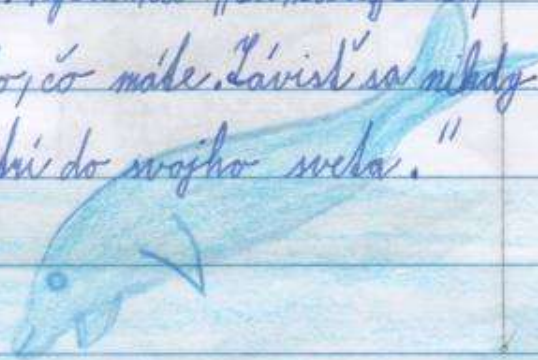 o, čo máte. Závisť sa nikdy
do svojho sveta."